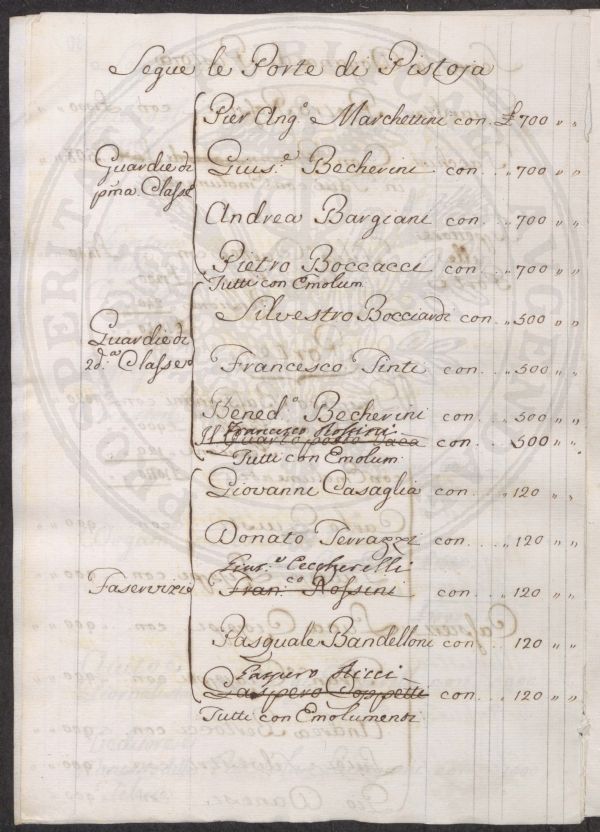 Segue le Porte di Pistoja
Guardie di pm̃a Classe
Pier Ang.º Marchettini con £ 700 " "
Gius.e Becherini con . . " 700 " "
Andrea Bargiani con . . " 700 " "
Pietro Boccacci con . . " 700 " "
Tutti con Emolum
Guardie di 2d.a Classe
Silvestro Bocciardi con . . " 500 " "
Francesco Tinti con . . . " 500 " "
Bened.º Becherini con . . . " 500 " "
Francesco Rossini
Il Quarto posto Vaca con . . . " 500 " "
Tutti con Emolum:
Faservizi
Giovanni Casaglia con . . . " 120 " "
Donato Terrazzi con . . . " 120 " "
Gius.e Ceccherelli
Fran.co Rossini con . . . " 120 " "
Pasquale Bandelloni con . . . " 120 " "
Gaspero Ricci
Gaspero Coppetti con . . . " 120 " "
Tutti con Emolumenti